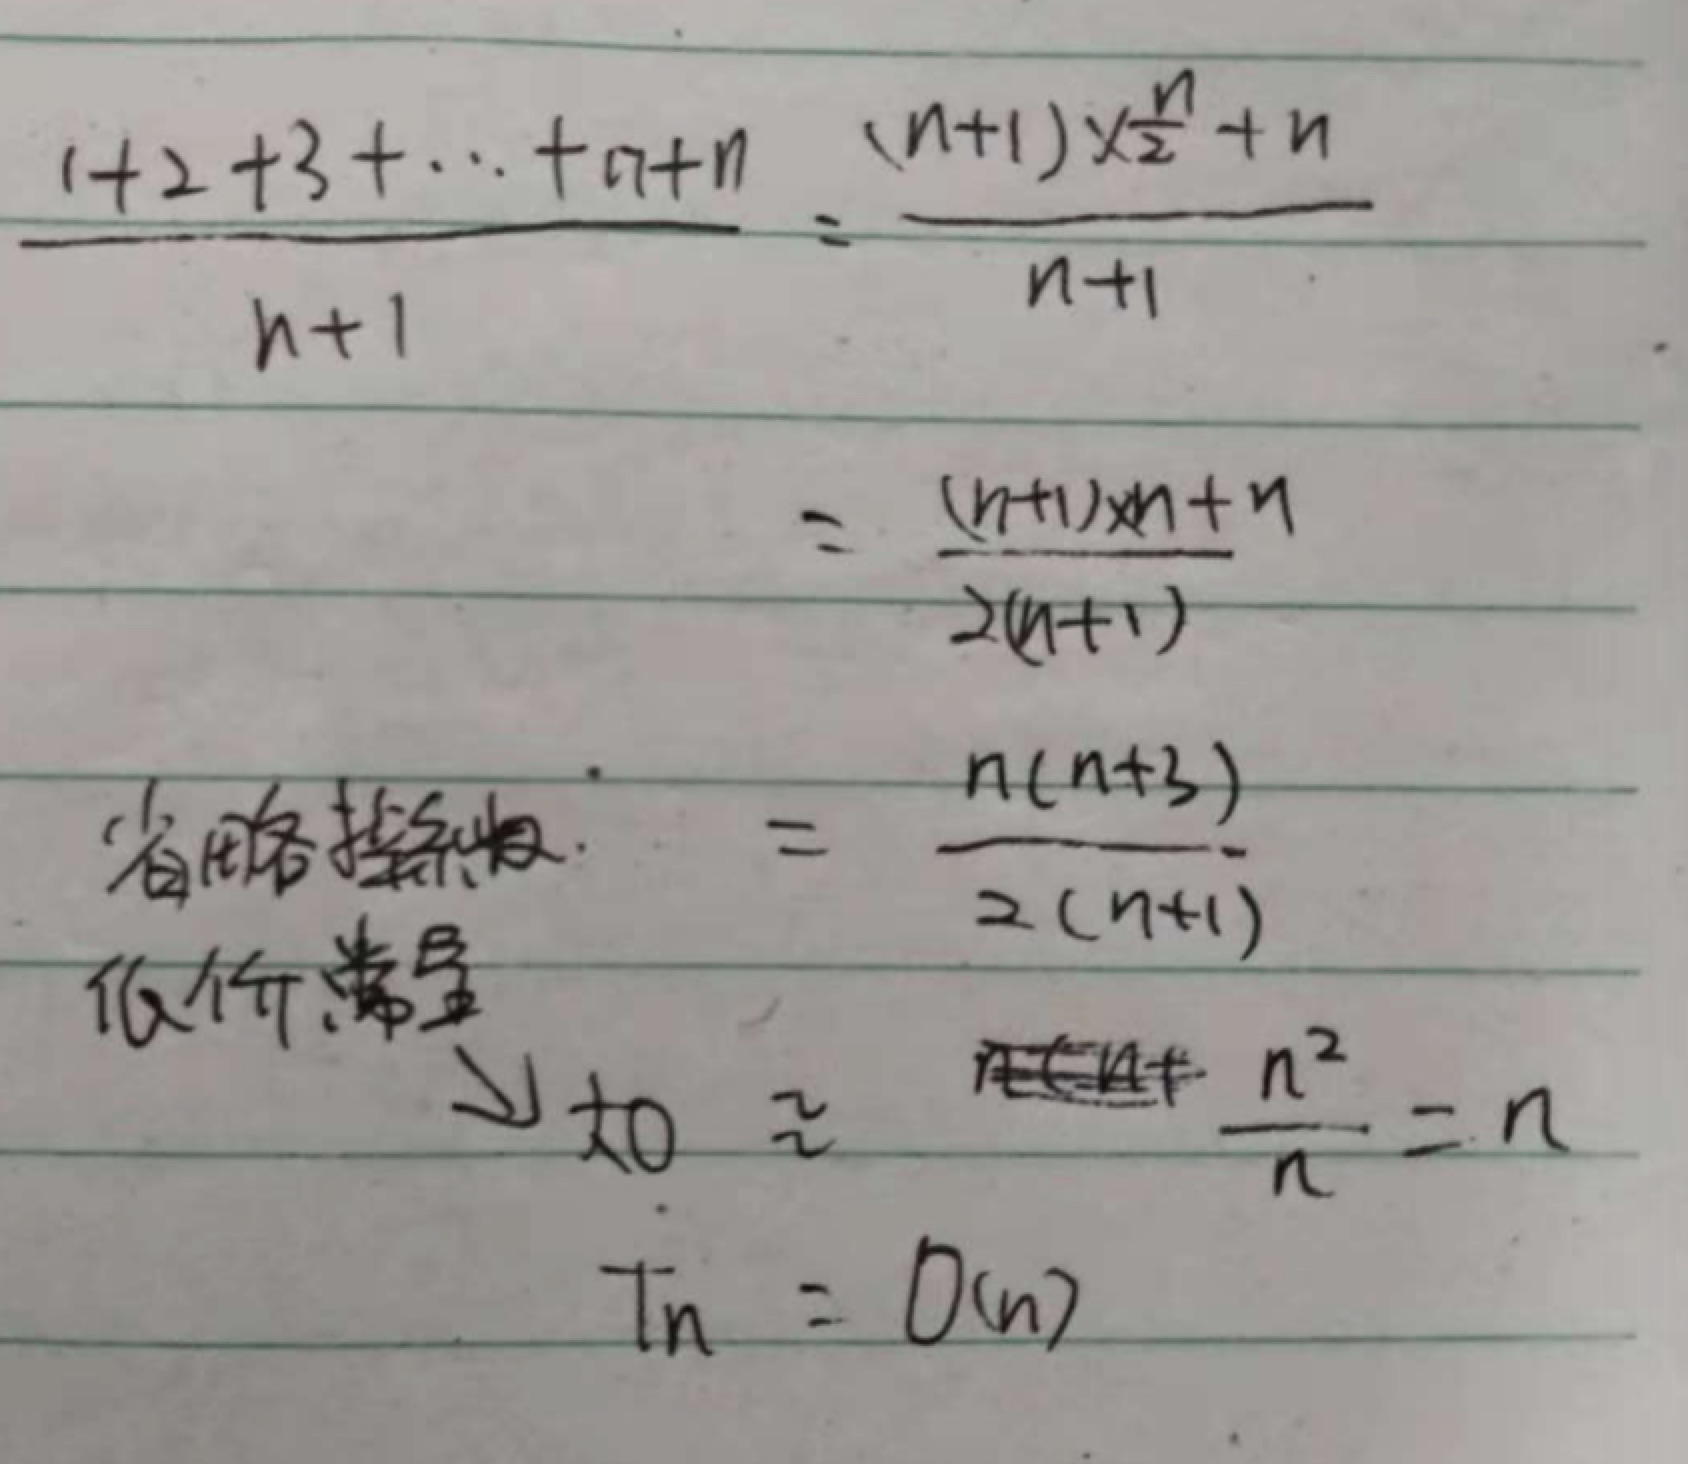 (1+2+3+...+n+n)/(n+1) = ((n+1)×n/2+n)/(n+1)
= ((n+1)×n+n)/(2(n+1))
省略 = n(n+3)/(2(n+1))
低价常量
↘ ≈ n²/n = n
Tn = O(n)